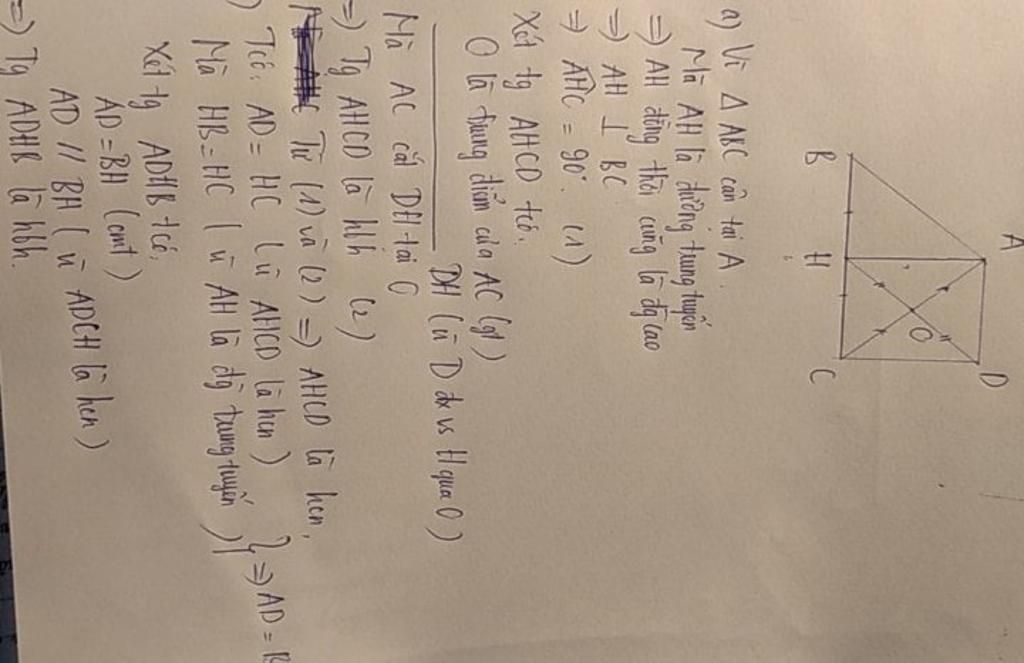 A
B
H
O
D
C
a) Vì Δ ABC cân tại A
Mà AH là đường trung tuyến
=> AH đồng thời cũng là đg cao
=> AH ⊥ BC
=> AHC = 90°. (1)
Xét tg AHCD tcó:
O là trung điểm của AC (gt)
DH (vì D đx vs H qua O)
Mà AC cắt DH tại O
=> Tg AHCD là hbh (2)
Từ (1) và (2) => AHCD là hcn,
Tcó: AD = HC (vì AHCD là hcn)
Mà HB = HC (vì AH là đg trung tuyến)
} => AD = B
Xét tg ADHB tcó:
AD = BH (cmt)
AD // BH (vì ADCH là hcn)
=> Tg ADHB là hbh.